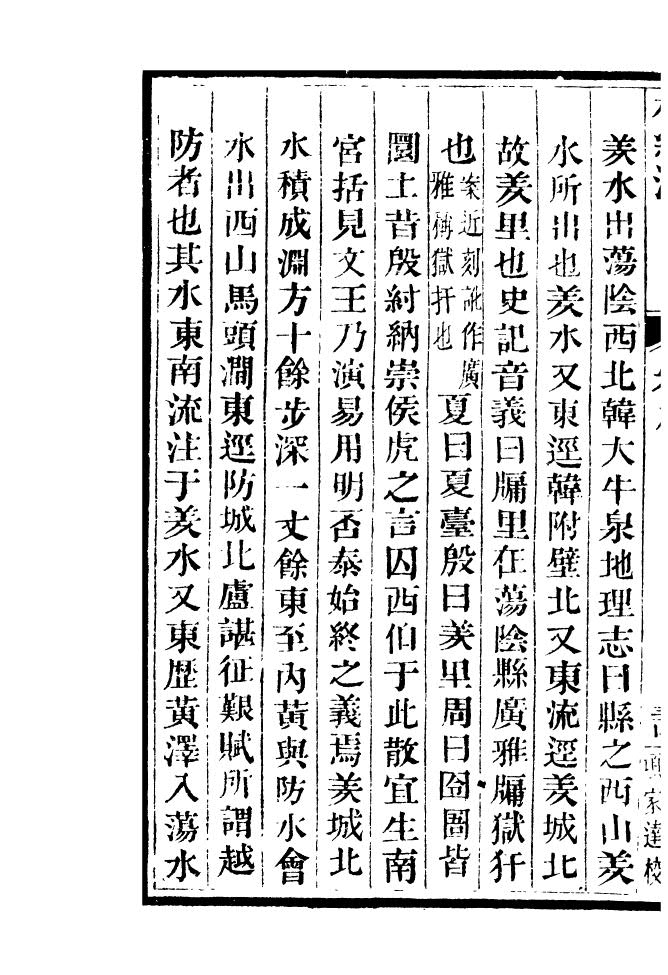 羑水出蕩陰西北韓大牛泉地理志曰縣之西山羑
水所出也羑水又東逕韓附壁北又東流逕羑城北
故羑里也史記音義曰牖里在蕩陰縣廣雅牖獄犴
也案近刻訛作廣雅稱獄犴也夏曰夏臺殷曰羑里周曰囹圄皆
圜土昔殷紂納崇侯虎之言囚西伯于此散宜生南
宮括見文王乃演易用明否泰始終之義焉羑城北
水積成淵方十餘步深一丈餘東至內黃與防水會
水出西山馬頭澗東逕防城北盧諶征艱賦所謂越
防者也其水東南流注于羑水又東歷黃澤入蕩水